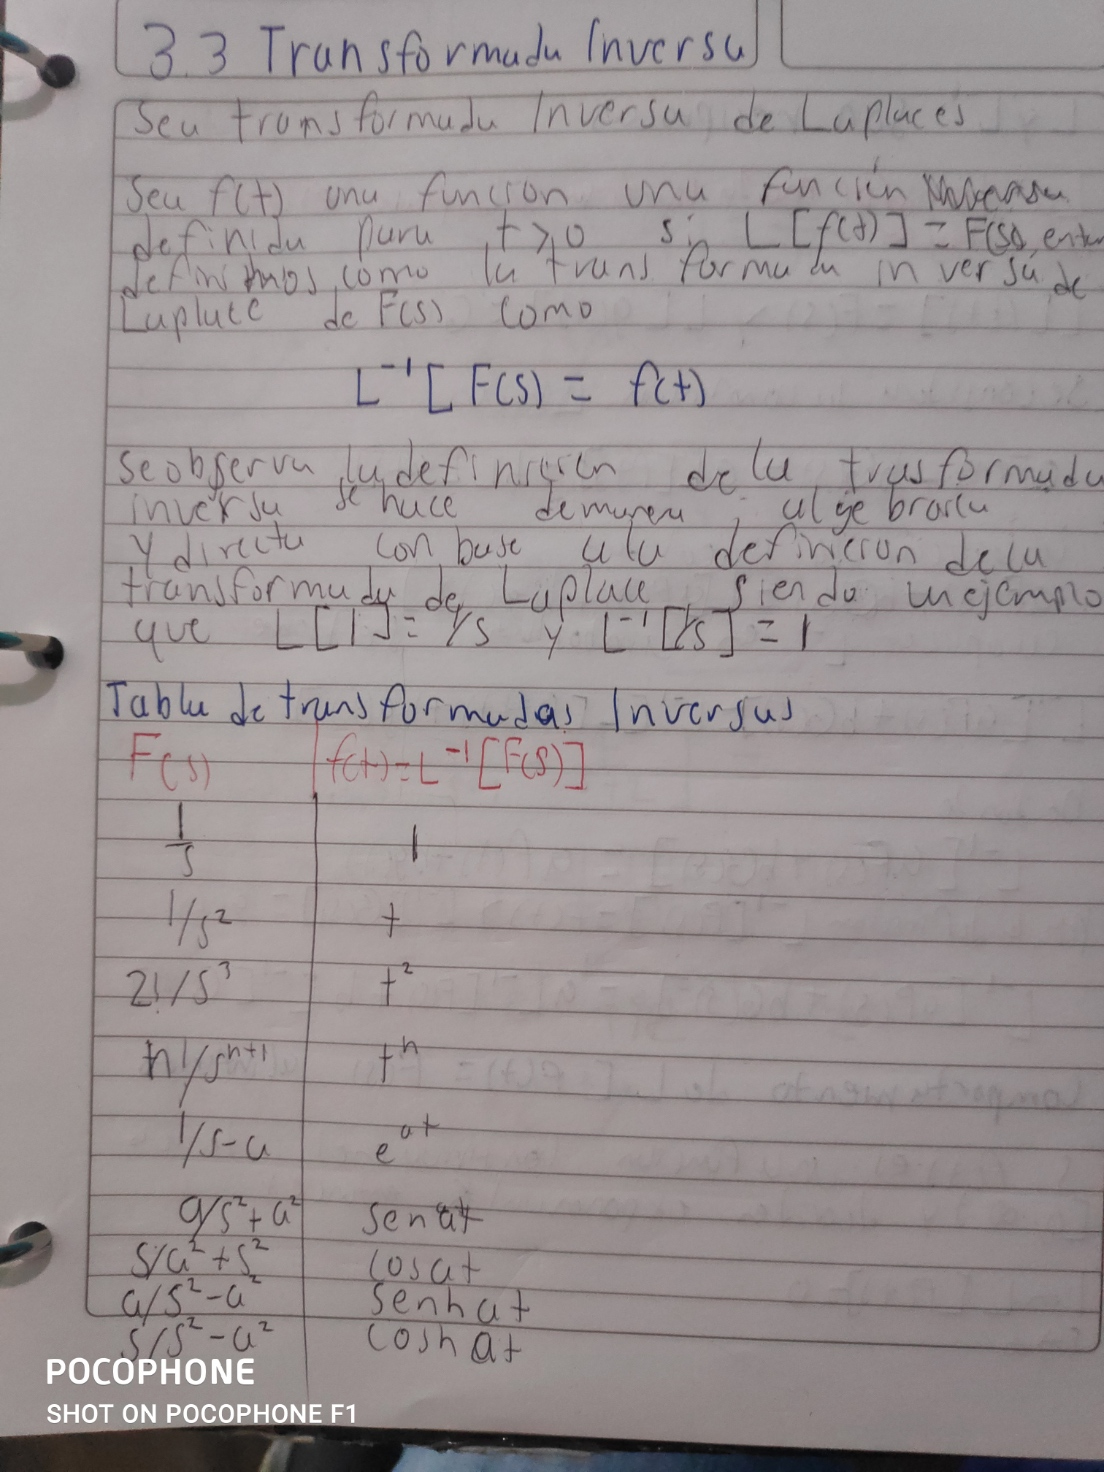 3.3 Transformada Inversa
Sea transformada Inversa de Laplaces
Sea f(t) una funcion una función
definida para t ≥ 0 si L[f(t)] = F(s), enton
definimos como la transformada inversa de
Laplace de F(s) como
L⁻¹[F(s) = f(t)
se observa la definición de la trasformada
inversa se hace de manera algebraica
y directa con base a la definicion de la
transformada de Laplace siendo un ejemplo
que L[1] = 1/s y L⁻¹[1/s] = 1
Tabla de transformadas Inversas
F(s) f(t) = L⁻¹[F(s)]
1/s 1
1/s² t
2!/s³ t²
n!/sⁿ⁺¹ tⁿ
1/s-a eᵃᵗ
a/s²+a² sen at
s/a²+s² cos at
a/s²-a² senh at
s/s²-a² cosh at
POCOPHONE
SHOT ON POCOPHONE F1